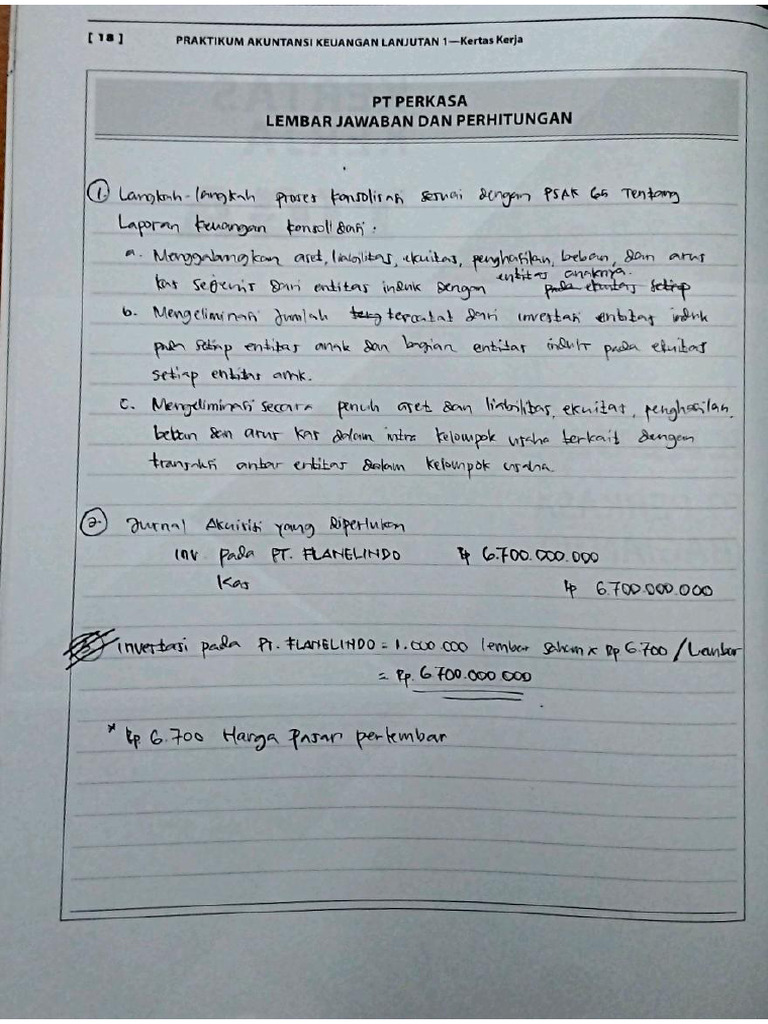 [ 18 ] PRAKTIKUM AKUNTANSI KEUANGAN LANJUTAN 1—Kertas Kerja
PT PERKASA
LEMBAR JAWABAN DAN PERHITUNGAN
1. Langkah-langkah proses konsolisasi sesuai dengan PSAK 65 Tentang
Laporan keuangan konsolidasi :
a. Menggabungkan aset, liabilitas, ekuitas, penghasilan, beban, dan arus
kas sejenis dari entitas induk dengan entitas anaknya. pada ekuitas setiap
b. Mengeliminasi Jumlah tercatat dari investasi entitas induk
pada setiap entitas anak dan bagian entitas induk pada ekuitas
setiap entitas anak.
c. Mengeliminasi secara penuh aset dan liabilitas, ekuitas, penghasilan,
beban dan arus kas dalam intra kelompok usaha terkait dengan
transaksi antar entitas dalam kelompok usaha.
2. Jurnal Akuisisi yang Diperlukan
Inv pada PT. FLANELINDO Rp 6.700.000.000
Kas Rp 6.700.000.000
Investasi pada PT. FLANELINDO = 1.000.000 lembar saham x Rp 6.700 / Lembar
= Rp. 6.700.000.000
* Rp 6.700 Harga Pasar perlembar